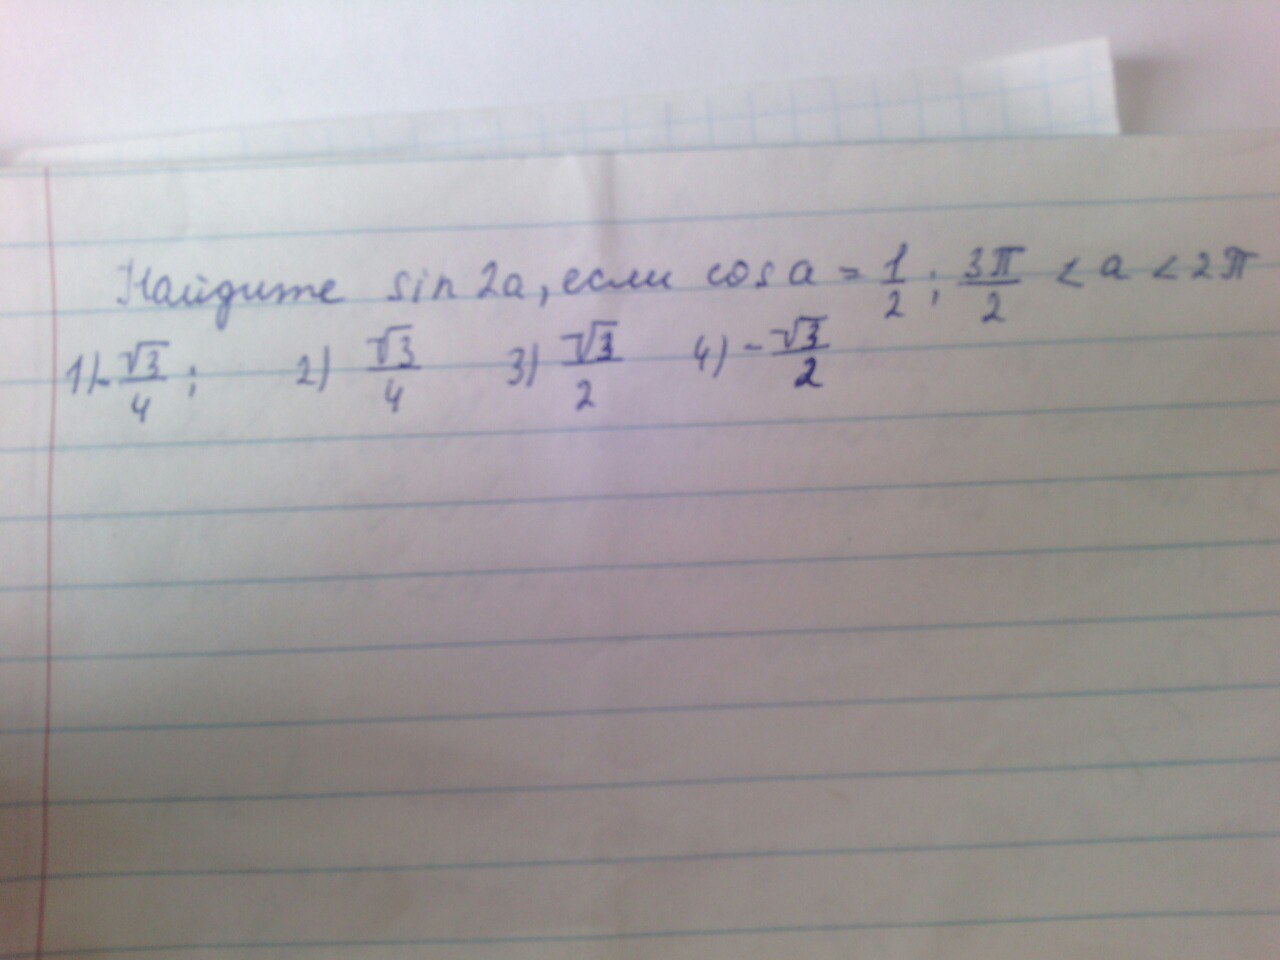 Найдите sin 2a, если cos a = 1/2; 3π/2 < a < 2π
1) -√3/4; 2) √3/4 3) √3/2 4) -√3/2